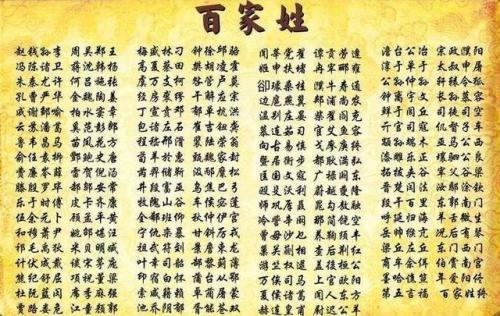 百家姓
赵钱孙李 周吴郑王
冯陈褚卫 蒋沈韩杨
朱秦尤许 何吕施张
孔曹严华 金魏陶姜
戚谢邹喻 柏水窦章
云苏潘葛 奚范彭郎
鲁韦昌马 苗凤花方
俞任袁柳 酆鲍史唐
费廉岑薛 雷贺倪汤
滕殷罗毕 郝邬安常
乐于时傅 皮卞齐康
伍余元卜 顾孟平黄
和穆萧尹 姚邵湛汪
祁毛禹狄 米贝明臧
计伏成戴 谈宋茅庞
熊纪舒屈 项祝董梁
杜阮蓝闵 席季麻强
贾路娄危 江童颜郭
梅盛林刁 钟徐邱骆
高夏蔡田 樊胡凌霍
虞万支柯 昝管卢莫
经房裘缪 干解应宗
丁宣贲邓 郁单杭洪
包诸左石 崔吉钮龚
程嵇邢滑 裴陆荣翁
荀羊於惠 甄曲家封
芮羿储靳 汲邴糜松
井段富巫 乌焦巴弓
牧隗山谷 车侯宓蓬
全郗班仰 秋仲伊宫
宁仇栾暴 甘钭厉戎
祖武符刘 景詹束龙
叶幸司韶 郜黎蓟薄
印宿白怀 蒲邰从鄂
索咸籍赖 卓蔺屠蒙
池乔阴 胥能苍双
闻莘党翟 谭贡劳逄
姬申扶堵 冉宰郦雍
卻璩桑桂 濮牛寿通
边扈燕冀 郏浦尚农
温别庄晏 柴瞿阎充
慕连茹习 宦艾鱼容
向古易慎 戈廖庾终
暨居衡步 都耿满弘
匡国文寇 广禄阙东
欧殳沃利 蔚越夔隆
师巩厍聂 晁勾敖融
冷訾辛阚 那简饶空
曾毋沙乜 养鞠须丰
巢关蒯相 查后荆红
游竺权逯 盖益桓公
万俟司马 上官欧阳
夏侯诸葛 闻人东方
赫连皇甫 尉迟公羊
澹台公冶 宗政濮阳
淳于单于 太叔申屠
公孙仲孙 轩辕令狐
钟离宇文 长孙慕容
鲜于闾丘 司徒司空
亓官司寇 仉督子车
颛孙端木 巫马公西
漆雕乐正 壤驷公良
拓跋夹谷 宰父谷梁
晋楚闫法 汝鄢涂钦
段干百里 东郭南门
呼延归海 羊舌微生
岳帅缑亢 况后有琴
梁丘左丘 东门西门
商牟佘佴 伯赏南宫
墨哈谯笪 年爱阳佟
第五言福 百家姓终